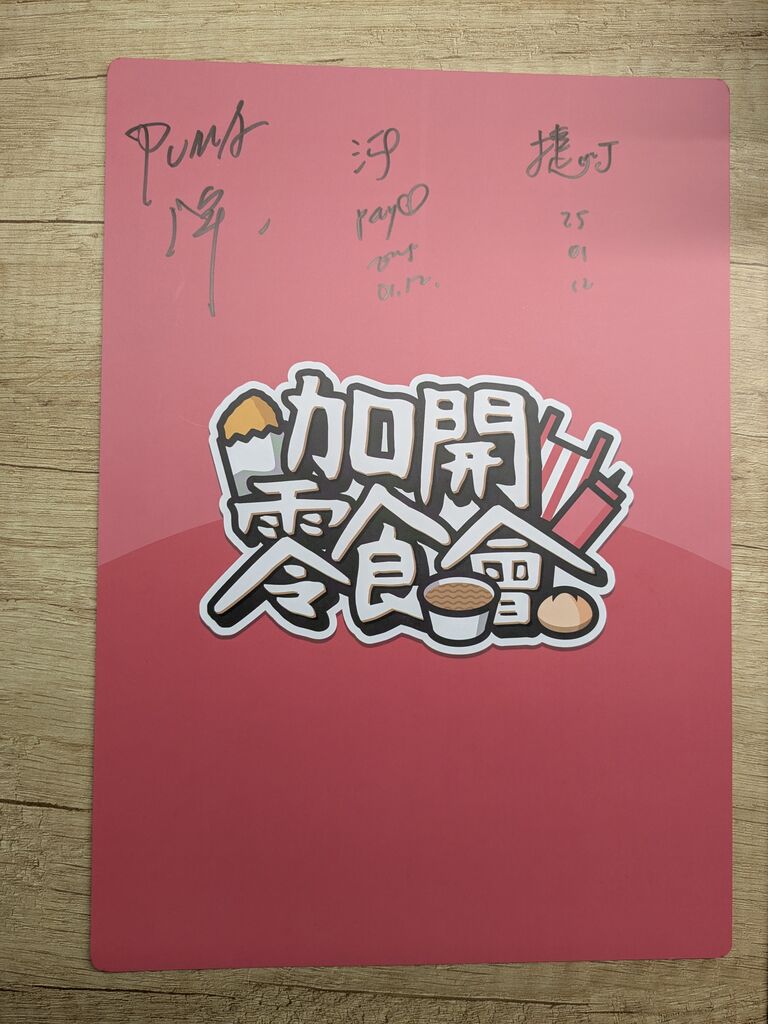 PUMA
pay
01.12.
捷
25
01
12
加開
零食會